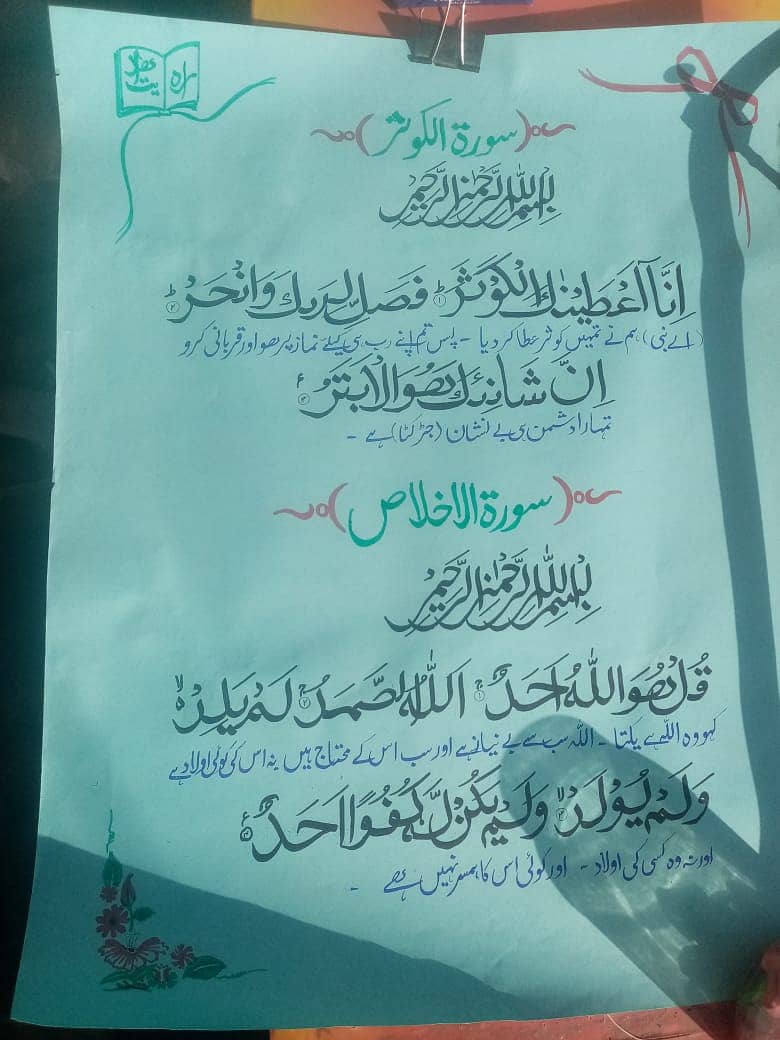 راہ ہدایت
سورة الکوثر
بِسْمِ اللّٰهِ الرَّحْمٰنِ الرَّحِيْمِ
اِنَّاۤ اَعْطَيْنٰكَ الْكَوْثَرَ ؕ۱ فَصَلِّ لِرَبِّكَ وَانْحَرْ ؕ۲
(اے نبی) ہم نے تمہیں کوثر عطا کر دیا - پس تم اپنے رب ہی کیلئے نماز پڑھو اور قربانی کرو
اِنَّ شَانِئَكَ هُوَ الْاَبْتَرُ ۳
تمہارا دشمن ہی بے نشان (جڑ کٹا) ہے -
سورة الاخلاص
بِسْمِ اللّٰهِ الرَّحْمٰنِ الرَّحِيْمِ
قُلْ هُوَ اللّٰهُ اَحَدٌ ۱ اَللّٰهُ الصَّمَدُ ۲ لَمْ يَلِدْ
کہو وہ اللہ ہے یکتا - اللہ سب سے بے نیاز ہے اور سب اس کے محتاج ہیں نہ اس کی کوئی اولاد ہے
وَلَمْ يُوْلَدْ ۳ وَلَمْ يَكُنْ لَّهٗ كُفُوًا اَحَدٌ ۴
اور نہ وہ کسی کی اولاد - اور کوئی اس کا ہمسر نہیں ہے -